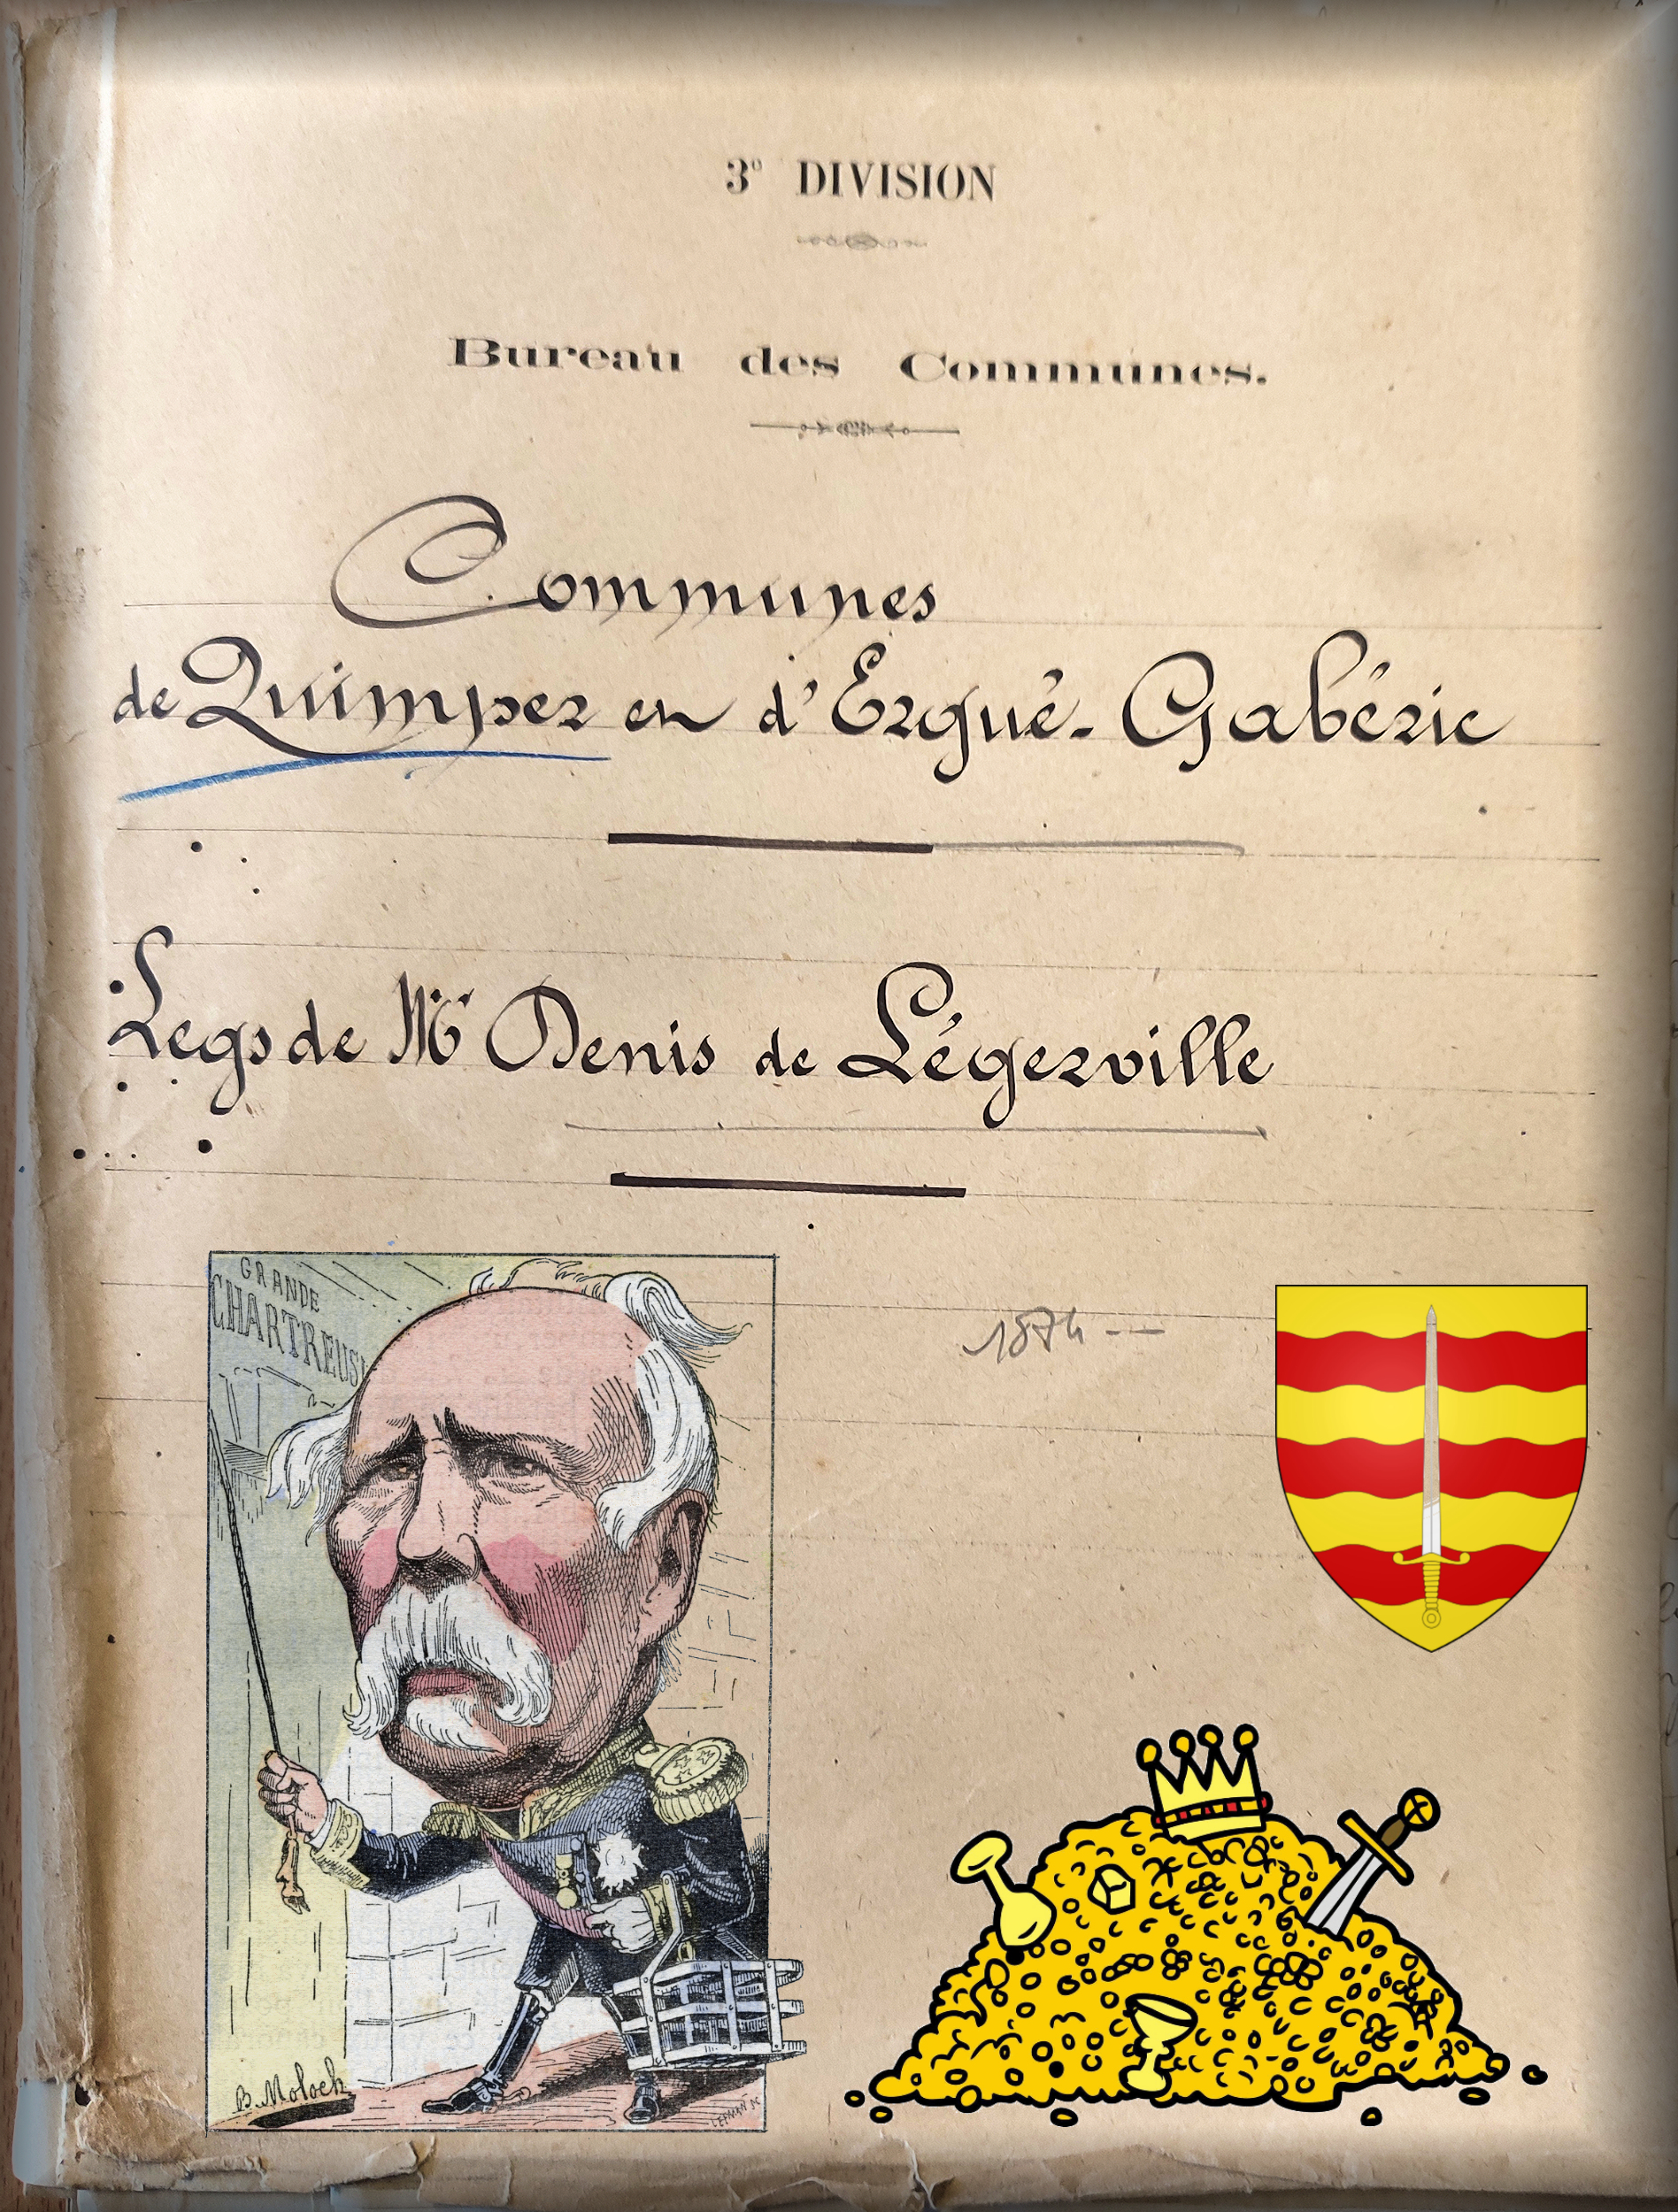 3e DIVISION
Bureau des Communes.
Communes
de Quimper et d'Ergué-Gabéric
Legs de Mr Denis de Légerville
1874 --
GRANDE
CHARTREUS
B. Moloch